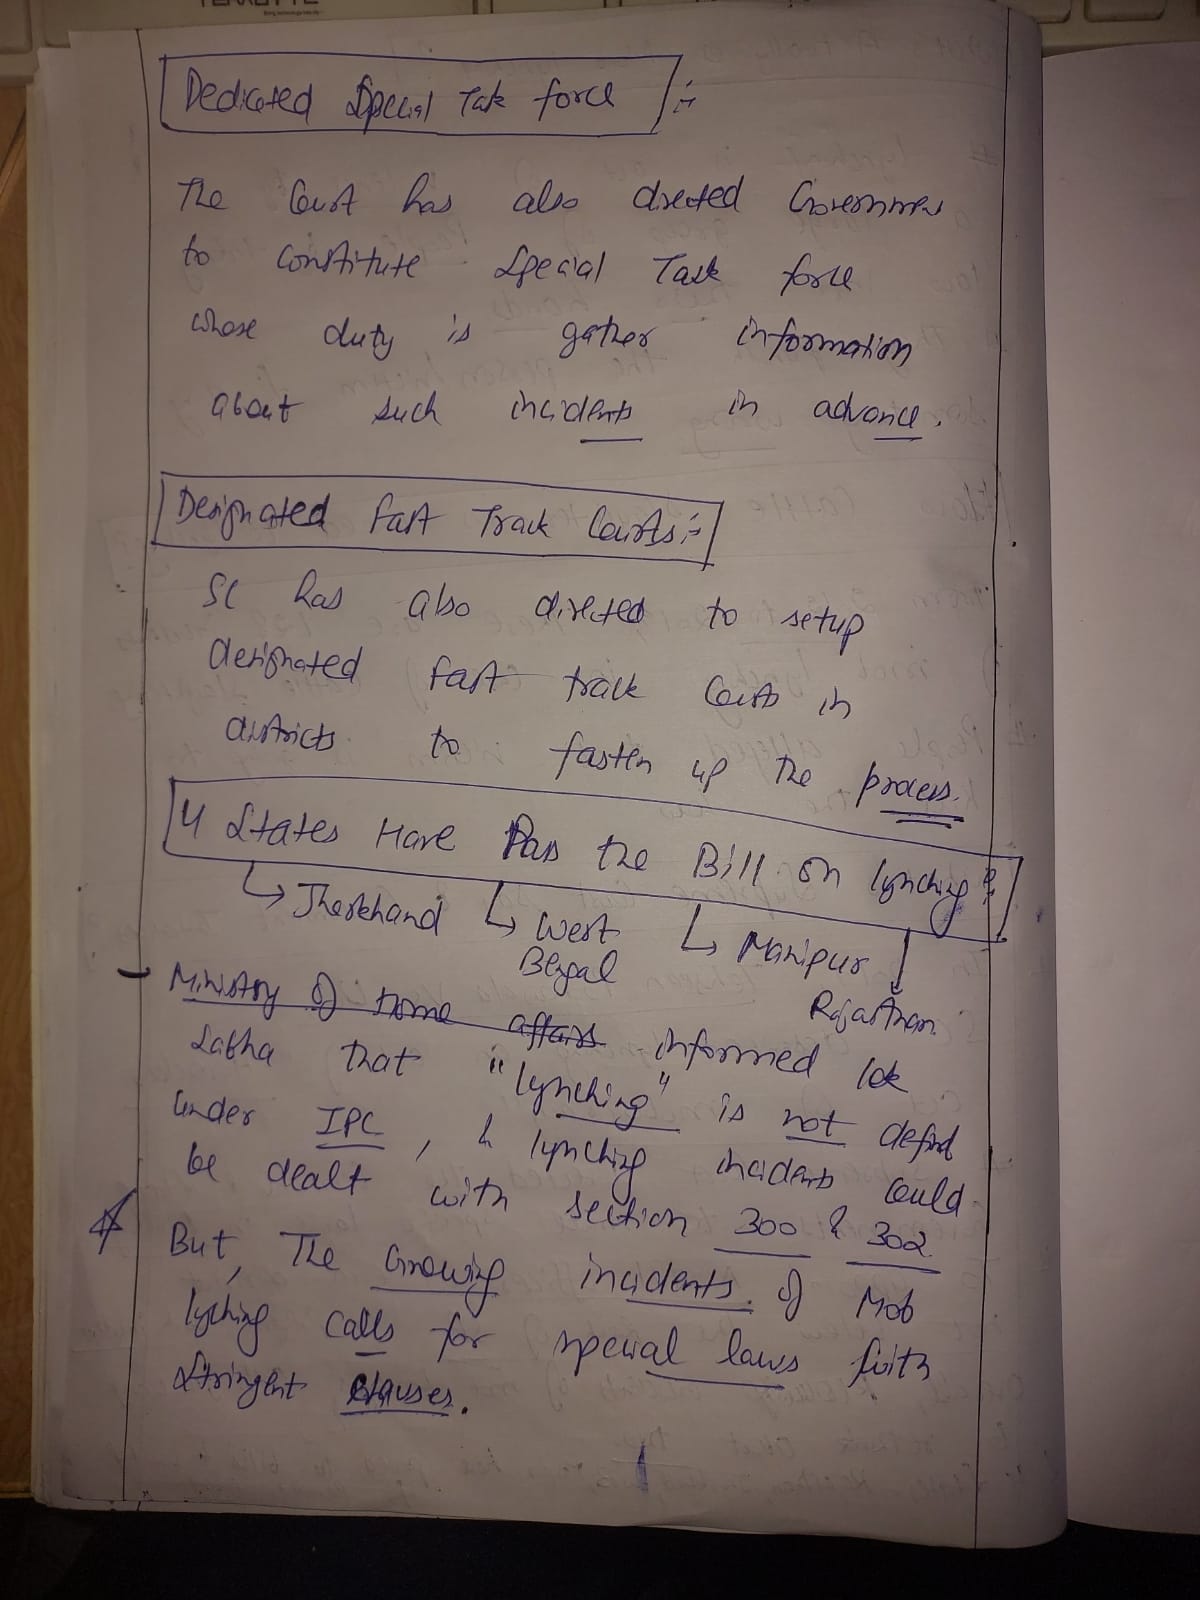 Dedicated Special Task force :-
The Court has also directed Governmnes
to constitute Special Task force
whose duty is gather information
about such incidents in advance.
Designated fast Track Courts :-
SC has also directed to setup
designated fast track Courts in
districts to fasten up the process.
4 States Have Pass the Bill on lynching :-
Jharkhand West Bengal Manipur Rajasthan
Ministry of Home affairs informed lok
Sabha that "lynching" is not defind
under IPC, & lynching incidents could
be dealt with section 300 & 302
But, The Growing incidents of Mob
lyching calls for special laws with
Stringent clauses.